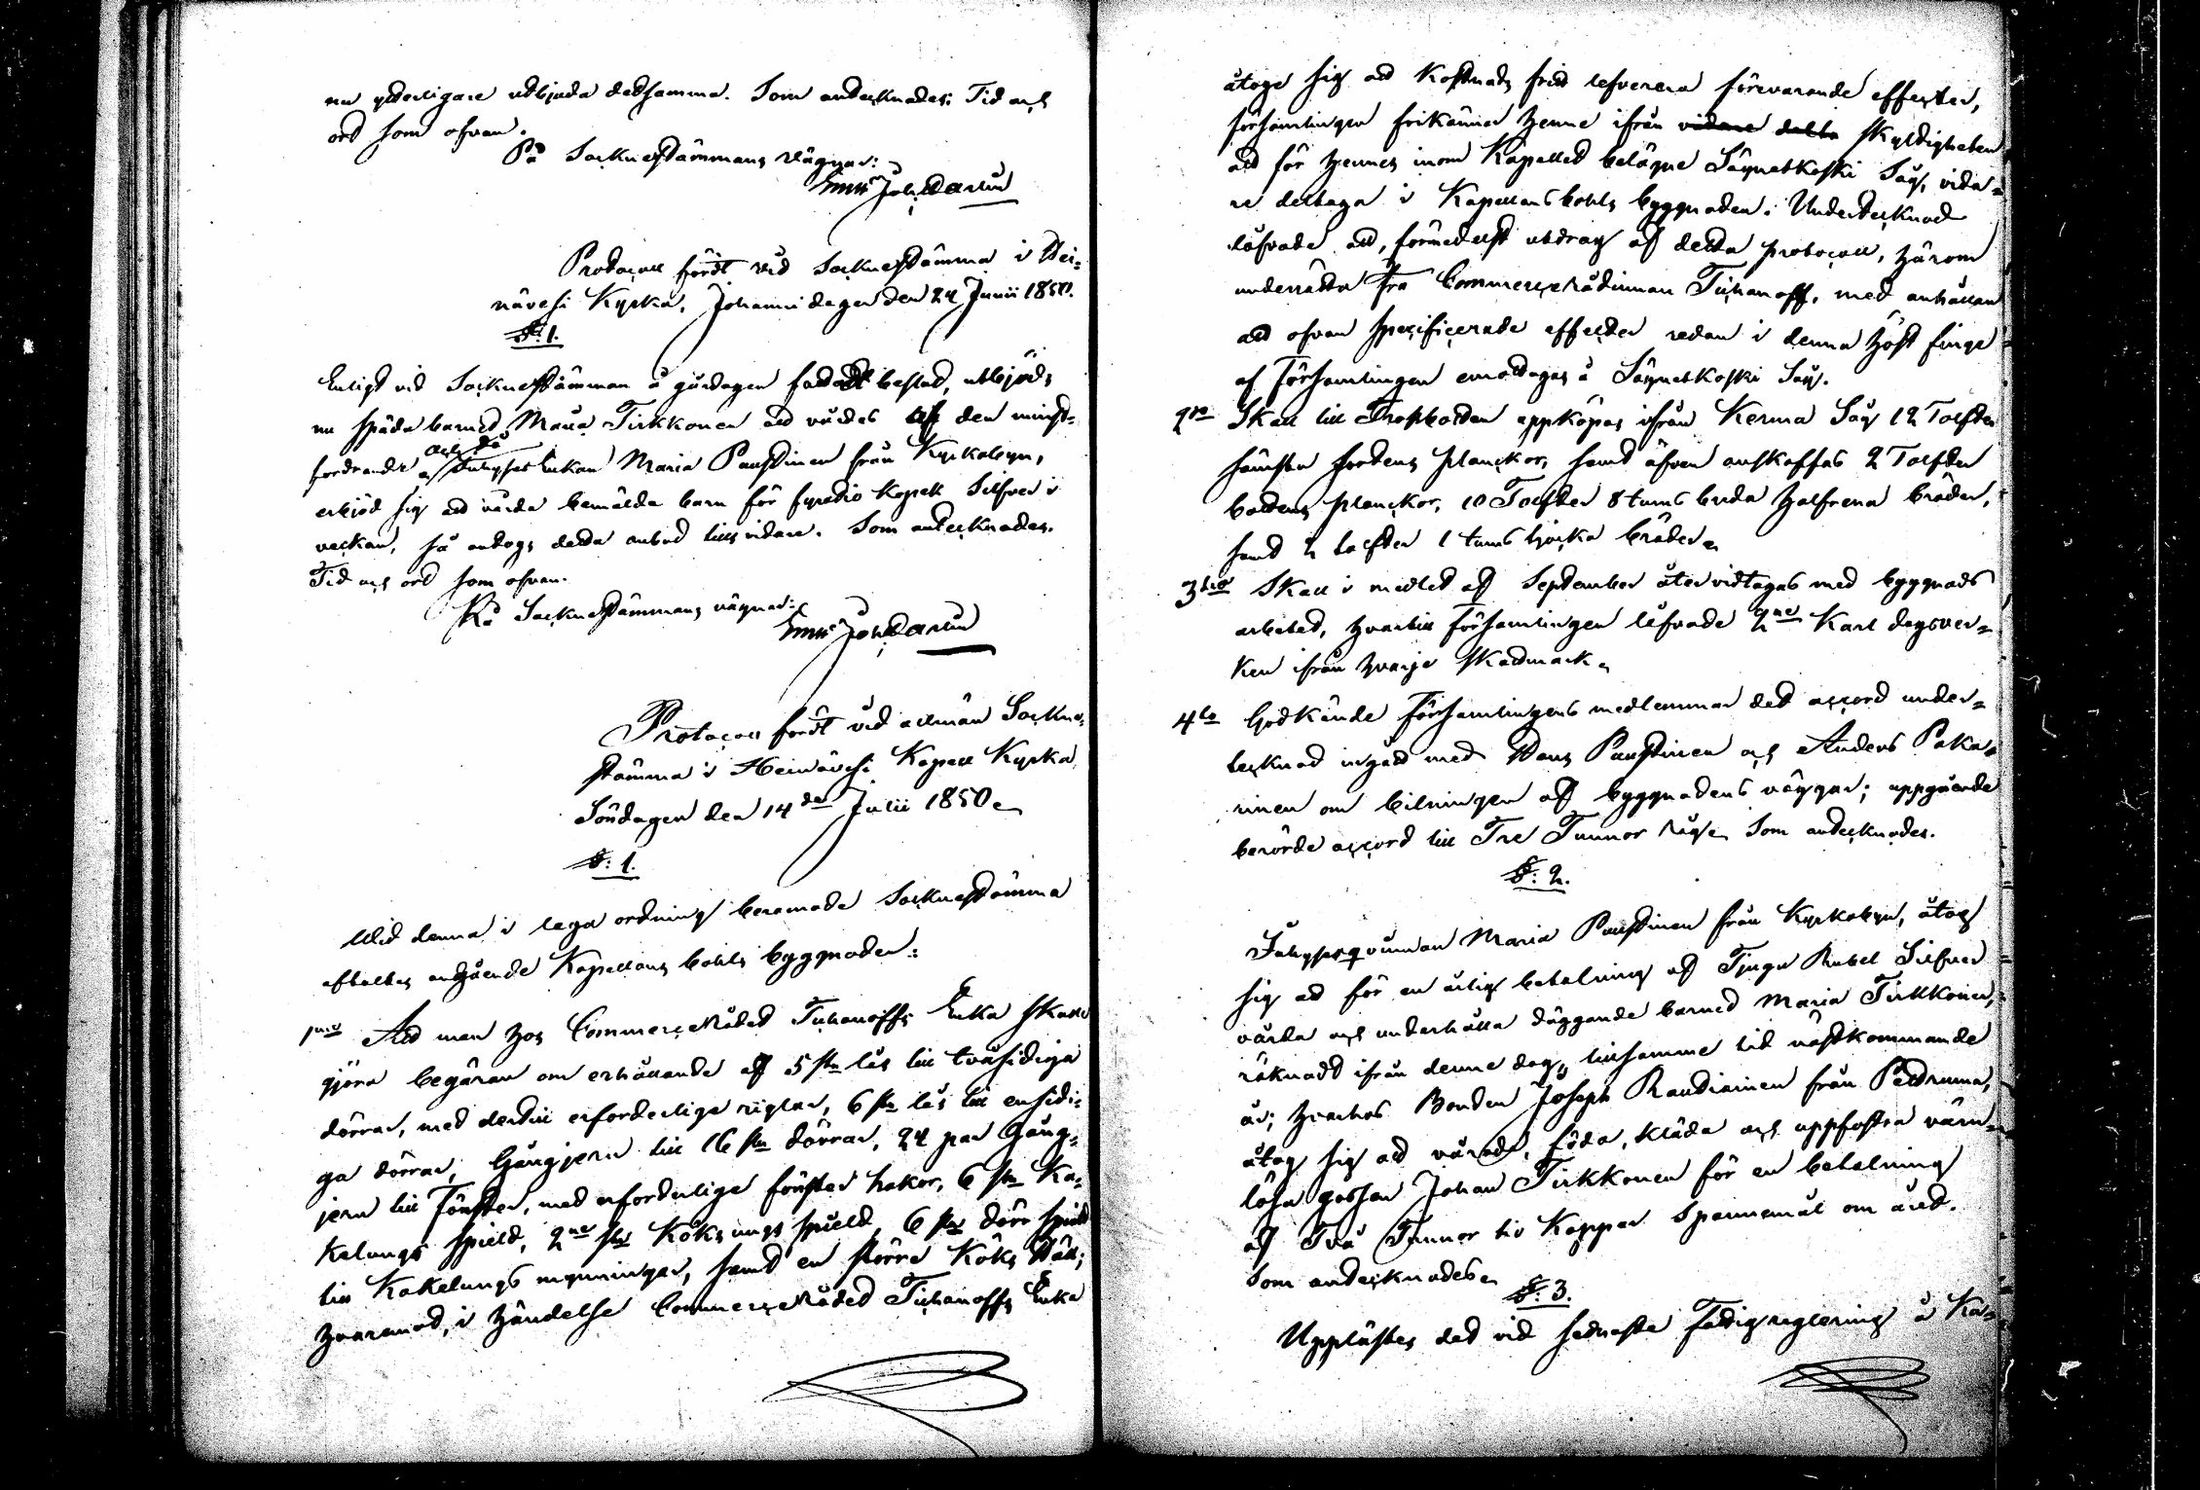 nu ytterligare utbjuda detsamma. Som antecknades; Tid och
ort som ofvan.
På Socknestämmans vägnar:
Emil Joh.
Protocoll fördt vid Socknestämma i Hei-
nävesi Kyrka, Johanni dagen den 24 Junii 1850.
§: 1.
Enligt vid Sockneställman å gårdagen fattadt beslut, utbjöds
nu späda barnet Maria Tirkkonen at vårdas af den minst-
fordrande och då Inhyses Enkan Maria Paustinen från Kyrkobyn,
erbjöd sig at vårda bemälda barn för fyratio Kopek Silfver i
veckan, så antogs detta anbud tills vidare. Som antecknades.
Tid och ort som ofvan.
På Sockneställmans vägnar:
Emil Joh.
Protocoll fördt vid allmän Sockne-
stämma i Heinävesi Kapell Kyrka
Söndagen den 14de Julii 1850.
§: 1.
Wid denna i laga ordning beramade Sockneställma
aftaltes angående Kapellans bohls byggnaden:
1mo At man hos CommerceRådet Tichanoffs Enka skall
göra begäran om erhållande af 5 st. lås till tvåsidiga
dörrar, med dertill erforderliga riglar, 6 st. lås till ensidi-
ga dörrar, Gångjern till 16 st. dörrar, 24 par Gång-
jern till Fönster, med erforderliga fönster hakor, 6 st. Ka-
kelungs spield, 2ne st. Köksungs spield, 6 st. dörr spield
till Kakelungs mynningar, samt en större Köks Häll;
hvaremot, i händelse CommerceRådet Tichanoffs Enka
åtoge sig at kostnads fritt lefverera förevarande effecter,
församlingen frikänner henne ifrån vidare delta skyldigheten
at för hennes inom Kapellet belägne Säynetkoski Såg, vida-
re deltaga i Kapellansbohls byggnaden. Undertecknad
låfvade at, förmedelst utdrag af detta protocoll, härom
underrätta Fru CommerceRådinnan Tichanoff, med anhållan
at ofvan specificerade effecter redan i denna höst finge
af Församlingen emottagas å Säynetkoski Såg.
2do Skall till Trossbotten uppköpas ifrån Kerma Såg 12 Tolfter
sämsta sortens planckor, samt äfven anskaffas 2 Tolfter
bottens planckor, 10 Tolfter 8 tums breda halfrena bräder,
samt 2 tolfter 1 tums tjocka bräder.
3tio Skall i medlet af September återvidtagas med byggnads
arbetet, hvartill Församlingen låfvade 2ne Karl dagsver-
ken ifrån hvarje skattmark.
4to Godkände Församlingens medlemmar det accord under-
tecknad ingått med Hans Paustinen och Anders Paka-
rinen om bilningen af byggnadens väggar; uppgående
berörde accord till Tre Tunnor råg. Som antecknades.
§: 2.
Inhysesqvinnan Maria Paustinen från Kyrkobyn, åtog
sig at för en årlig betalning af Tjugu Rubel Silfver
vårda och underhålla däggande barnet Maria Tirkkonen,
räknadt ifrån denne dag, till samme tid nästkommande
år; hvarhos Bonden Joseph Rautiainen från Petruma,
åtog sig at vårda, föda, kläda och uppfostra värn-
lösa gossen Johan Tirkkonen för en betalning
af Två Tunnor tio Kappar Spannemål om året.
Som antecknades.
§: 3.
Upplästes det vid sednaste Fattigreglering å Ka-